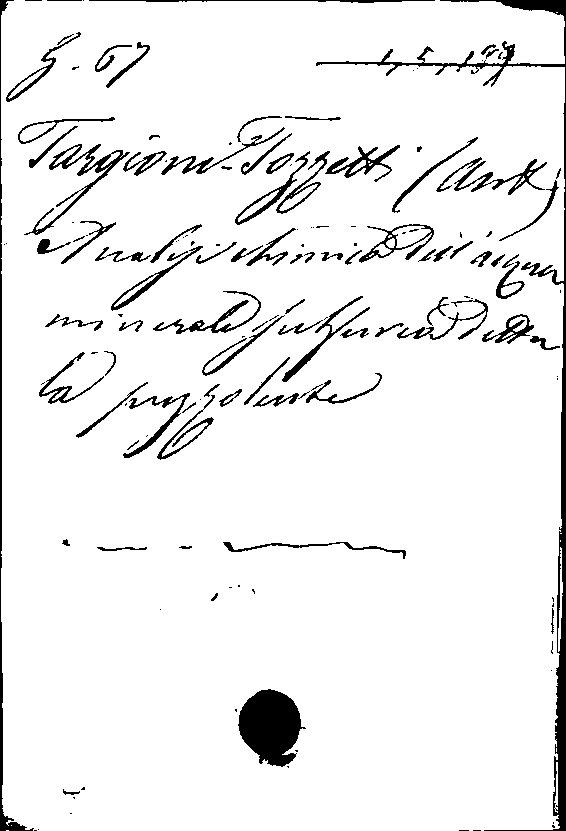 G. 67 1, 5, 189
Targioni-Tozzetti (Ant)
Analisi chimica dell'acqua
minerale sulfurea detta
la puzzolente